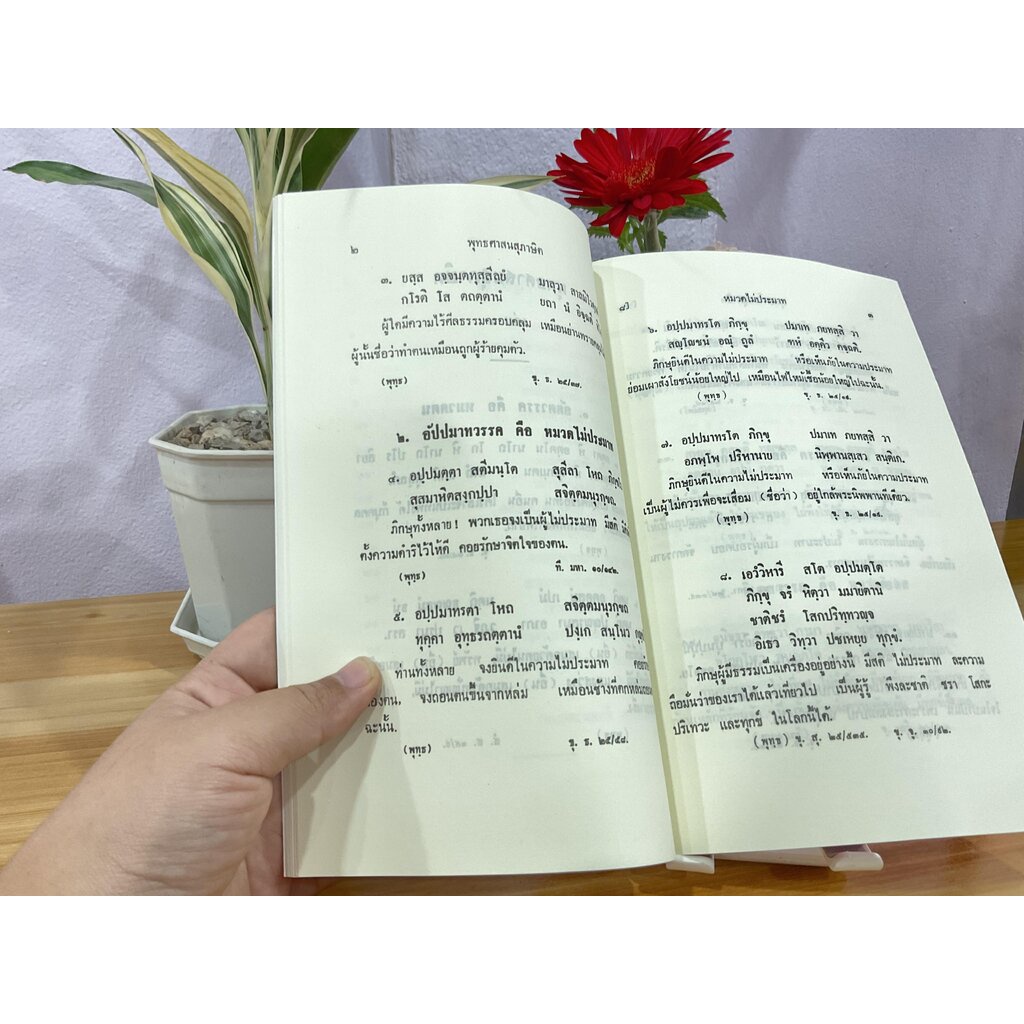 ๒ พุทธศาสนสุภาษิต
๓. ยสฺส อจฺจนฺตทุสฺสีลฺยํ มาลุวา
กโรติ โส ตถตฺตานํ ยถา นํ อิจฺฉตี
ผู้ใดมีความไร้ศีลธรรมครอบคลุม เหมือนย่านทราย
ผู้นั้นชื่อว่าทำตนเหมือนถูกผู้ร้ายคุมตัว.
(พุทฺธ) ขุ. ธ. ๒๕/๓๗.
๒. อัปปมาทวรรค คือ หมวดไม่ประมาท
๔. อปฺปมตฺตา สตีมนฺโต สุสีลา โหถ
สุสมาหิตสงฺกปฺปา สจิตฺตมนุรกฺขถ.
ภิกษุทั้งหลาย! พวกเธอจงเป็นผู้ไม่ประมาท มีสติ
ตั้งความดำริไว้ให้ดี คอยรักษาจิตใจของตน.
(พุทฺธ) ที. มหา. ๑๐/๑๔๒.
๕. อปฺปมาทรตา โหถ สจิตฺตมนุรกฺขถ
ทุคฺคา อุทฺธรถตฺตานํ ปงฺเก สนฺโนว
ท่านทั้งหลาย จงยินดีในความไม่ประมาท
ของตน, จงถอนตนขึ้นจากหล่ม เหมือนช้างที่ตกหล่ม
ฉะนั้น.
(พุทฺธ) ขุ. ธ. ๒๕/๕๘.
หมวดไม่ประมาท ๓
๖. อปฺปมาทรโต ภิกฺขุ ปมาเท ภยทสฺสิ วา
สญฺโญชนํ อณุํ ถูลํ ฑหํ อคฺคีว คจฺฉติ.
ภิกษุยินดีในความไม่ประมาท หรือเห็นภัยในความประมาท
ย่อมเผาสังโยชน์น้อยใหญ่ไป เหมือนไฟไหม้เชื้อน้อยใหญ่ไปฉะนั้น.
(พุทฺธ) ขุ. ธ. ๒๕/๑๙.
๗. อปฺปมาทรโต ภิกฺขุ ปมาเท ภยทสฺสิ วา
อภพฺโพ ปริหานาย นิพฺพานสฺเสว สนฺติเก.
ภิกษุยินดีในความไม่ประมาท หรือเห็นภัยในความประมาท
เป็นผู้ไม่ควรเพื่อจะเสื่อม (ชื่อว่า) อยู่ใกล้พระนิพพานทีเดียว.
(พุทฺธ) ขุ. ธ. ๒๕/๑๙.
๘. เอวํวิหารี สโต อปฺปมตฺโต
ภิกฺขุ จรํ หิตฺวา มมายิตานิ
ชาติชรํ โสกปริทฺทวญฺจ
อิเธว วิทฺวา ปชเหยฺย ทุกฺขํ.
ภิกษุผู้มีธรรมเป็นเครื่องอยู่อย่างนี้ มีสติ ไม่ประมาท ละความ
ถือมั่นว่าของเราได้แล้วเที่ยวไป เป็นผู้รู้ พึงละชาติ ชรา โสกะ
ปริเทวะ และทุกข์ ในโลกนี้ได้.
(พุทฺธ) ขุ. สุ. ๒๕/๕๓๕. ขุ. จู. ๓๐/๙๒.